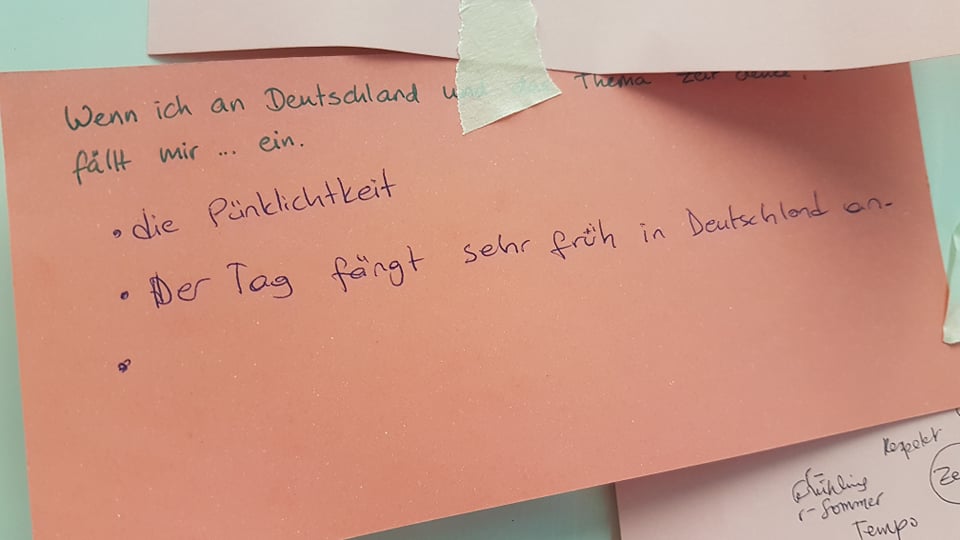 Wenn ich an Deutschland und das Thema Zeit denke,
fällt mir ... ein.
• die Pünklichtkeit
• Der Tag fängt sehr früh in Deutschland an.
•
Respekt
Frühling
r-Sommer
Tempo